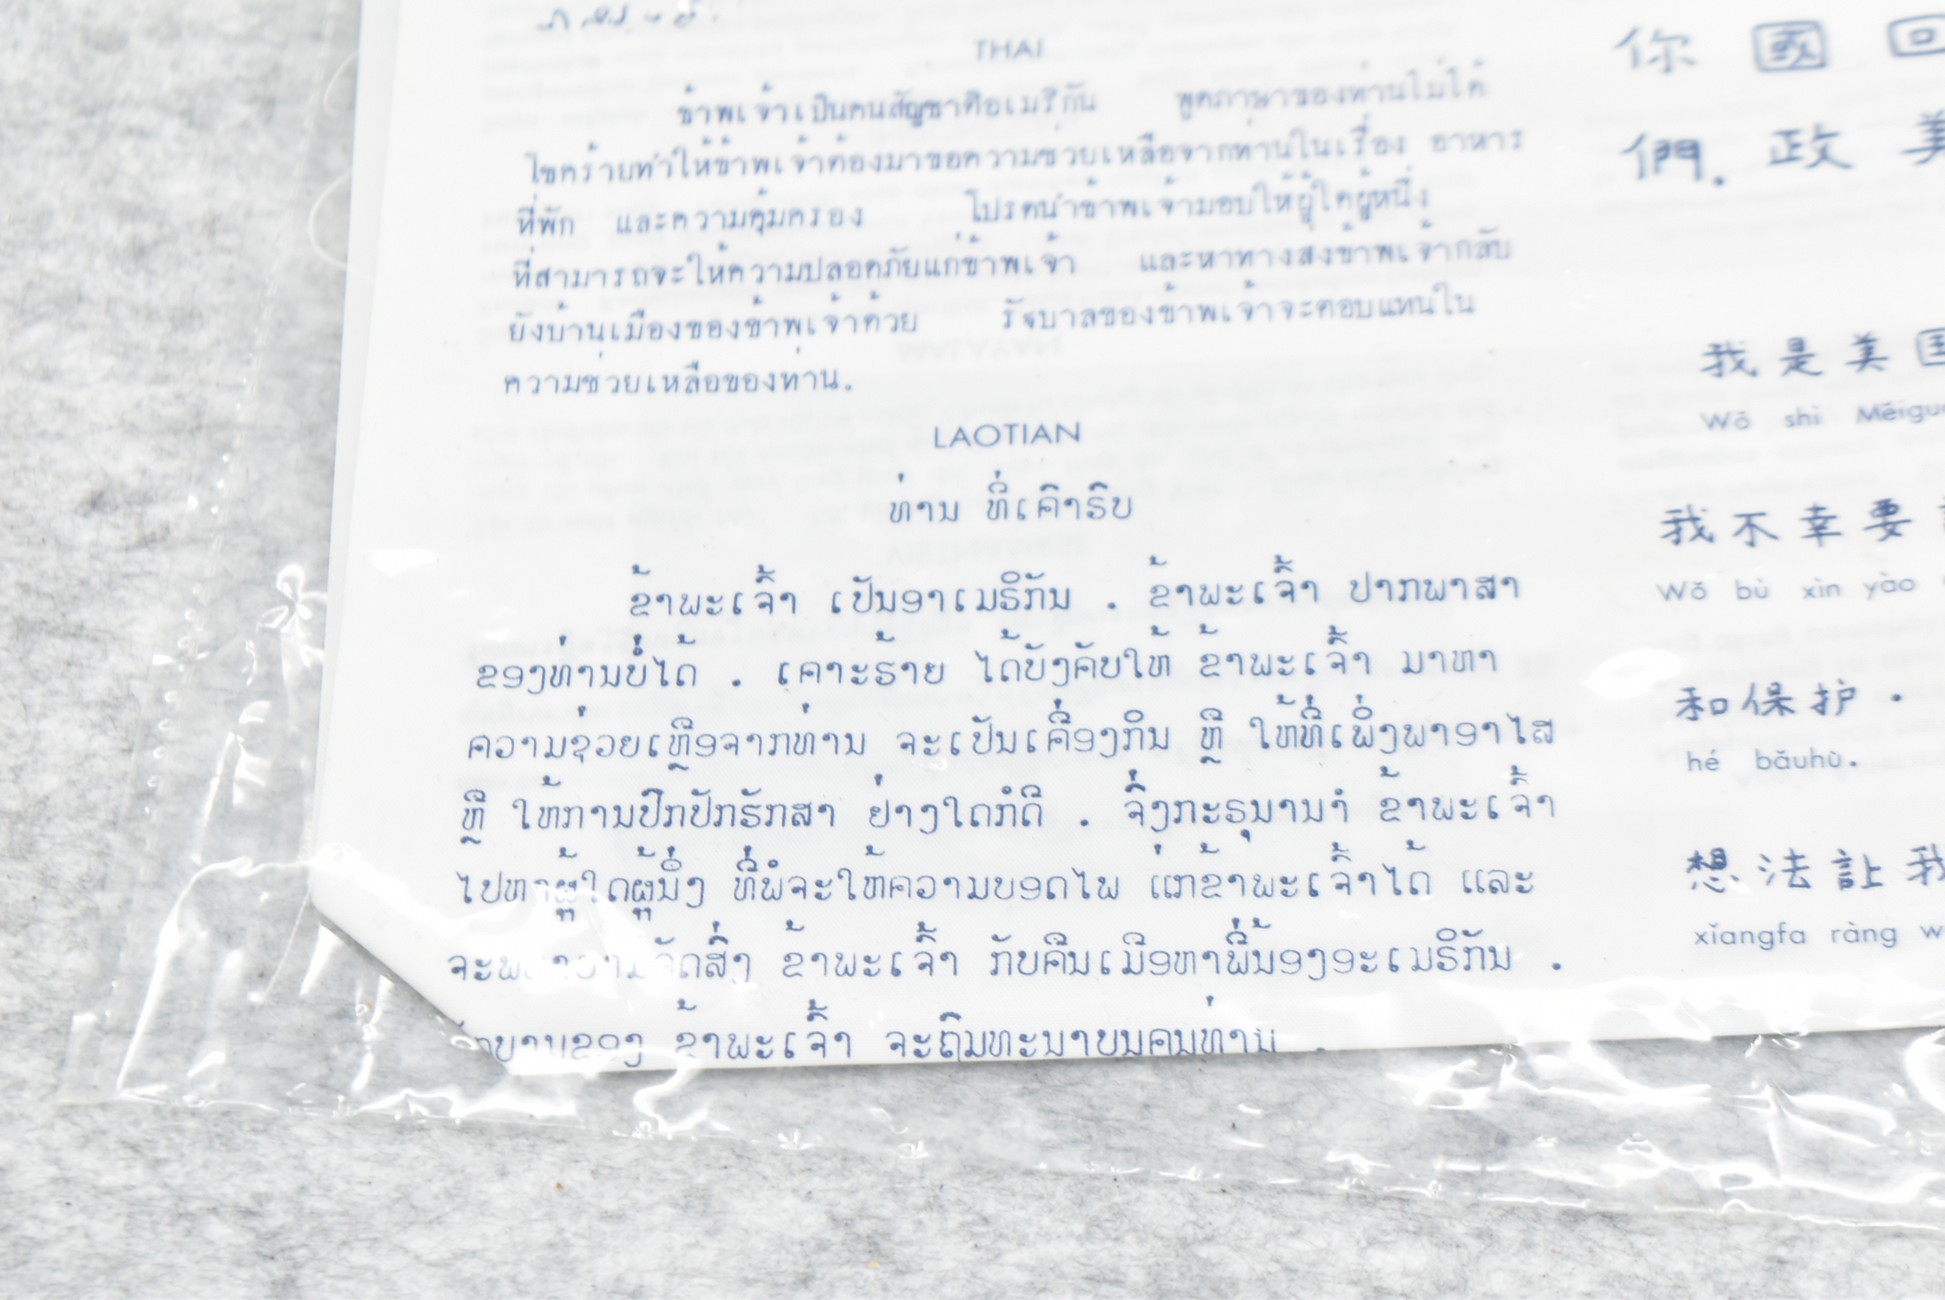 THAI
ข้าพเจ้าเป็นคนสัญชาติอเมริกัน พูดภาษาของท่านไม่ได้
โชคร้ายทำให้ข้าพเจ้าต้องมาขอความช่วยเหลือจากท่านในเรื่อง อาหาร
ที่พัก และความคุ้มครอง โปรดนำข้าพเจ้ามอบให้ผู้ใดผู้หนึ่ง
ที่สามารถจะให้ความปลอดภัยแก่ข้าพเจ้า และหาทางส่งข้าพเจ้ากลับ
ยังบ้านเมืองของข้าพเจ้าด้วย รัฐบาลของข้าพเจ้าจะตอบแทนใน
ความช่วยเหลือของท่าน.
LAOTIAN
ທ່ານ ທີ່ເຄົາຣົບ
ຂ້າພະເຈົ້າ ເປັນອາເມຣິກັນ . ຂ້າພະເຈົ້າ ປາກພາສາ
ຂອງທ່ານບໍ່ໄດ້ . ເຄາະຮ້າຍ ໄດ້ບັງຄັບໃຫ້ ຂ້າພະເຈົ້າ ມາຫາ
ຄວາມຊ່ວຍເຫຼືອຈາກທ່ານ ຈະເປັນເຄື່ອງກິນ ຫຼື ໃຫ້ທີ່ເພິ່ງພາອາໄສ
ຫຼື ໃຫ້ການປົກປັກຮັກສາ ຢ່າງໃດກໍດີ . ຈຶ່ງກະຣຸນານຳ ຂ້າພະເຈົ້າ
ໄປຫາຜູ້ໃດຜູ້ນຶ່ງ ທີ່ພໍຈະໃຫ້ຄວາມປອດໄພ ແກ່ຂ້າພະເຈົ້າໄດ້ ແລະ
ຂ້າພະເຈົ້າ ກັບຄືນເມືອຫາພີ່ນ້ອງອະເມຣິກັນ .
ຂອງ ຂ້າພະເຈົ້າ ຈະ
你 國 回
們. 政 美
我 是 美 国
Wŏ shì Mĕiguó
我 不 幸 要
Wŏ bù xìn yào
和 保 护 .
hé băuhù.
想 法 訨 我
xĭangfa ràng w